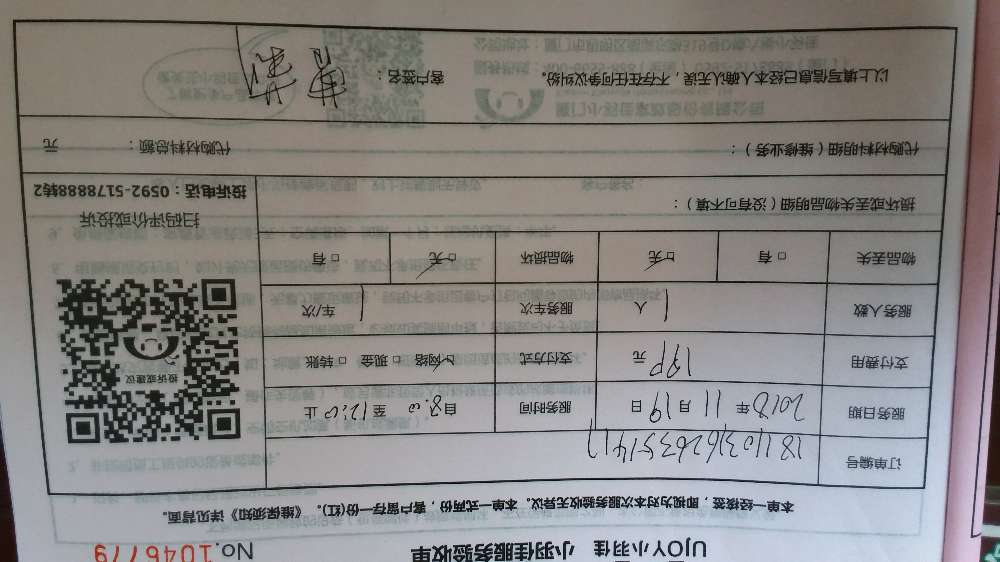 UJOY小羽佳 小羽佳服务验收单 No.1046779
本单一经接签，即视为对本次服务验收无异议。本单一式两份，客户留存一份(红)。《维保须知》详见背面。
订单编号 1811031626351417
服务日期 2018年11月19日 服务时间 自8:00至12:0止
支付费用 元 支付方式 ☑网络 □现金 □转账
服务人数 1人 服务车次 1车/次
物品丢失 □有 ☑无 物品损坏 ☑无 □有
投诉或建议
扫码评价或投诉
投诉电话：0592-5178888转2
损坏或丢失物品明细（没有可不填）：
代购材料明细（维修业务）： 代购材料总额： 元
以上填写信息已经本人确认无误，不存在任何争议纠纷。 客户签名：